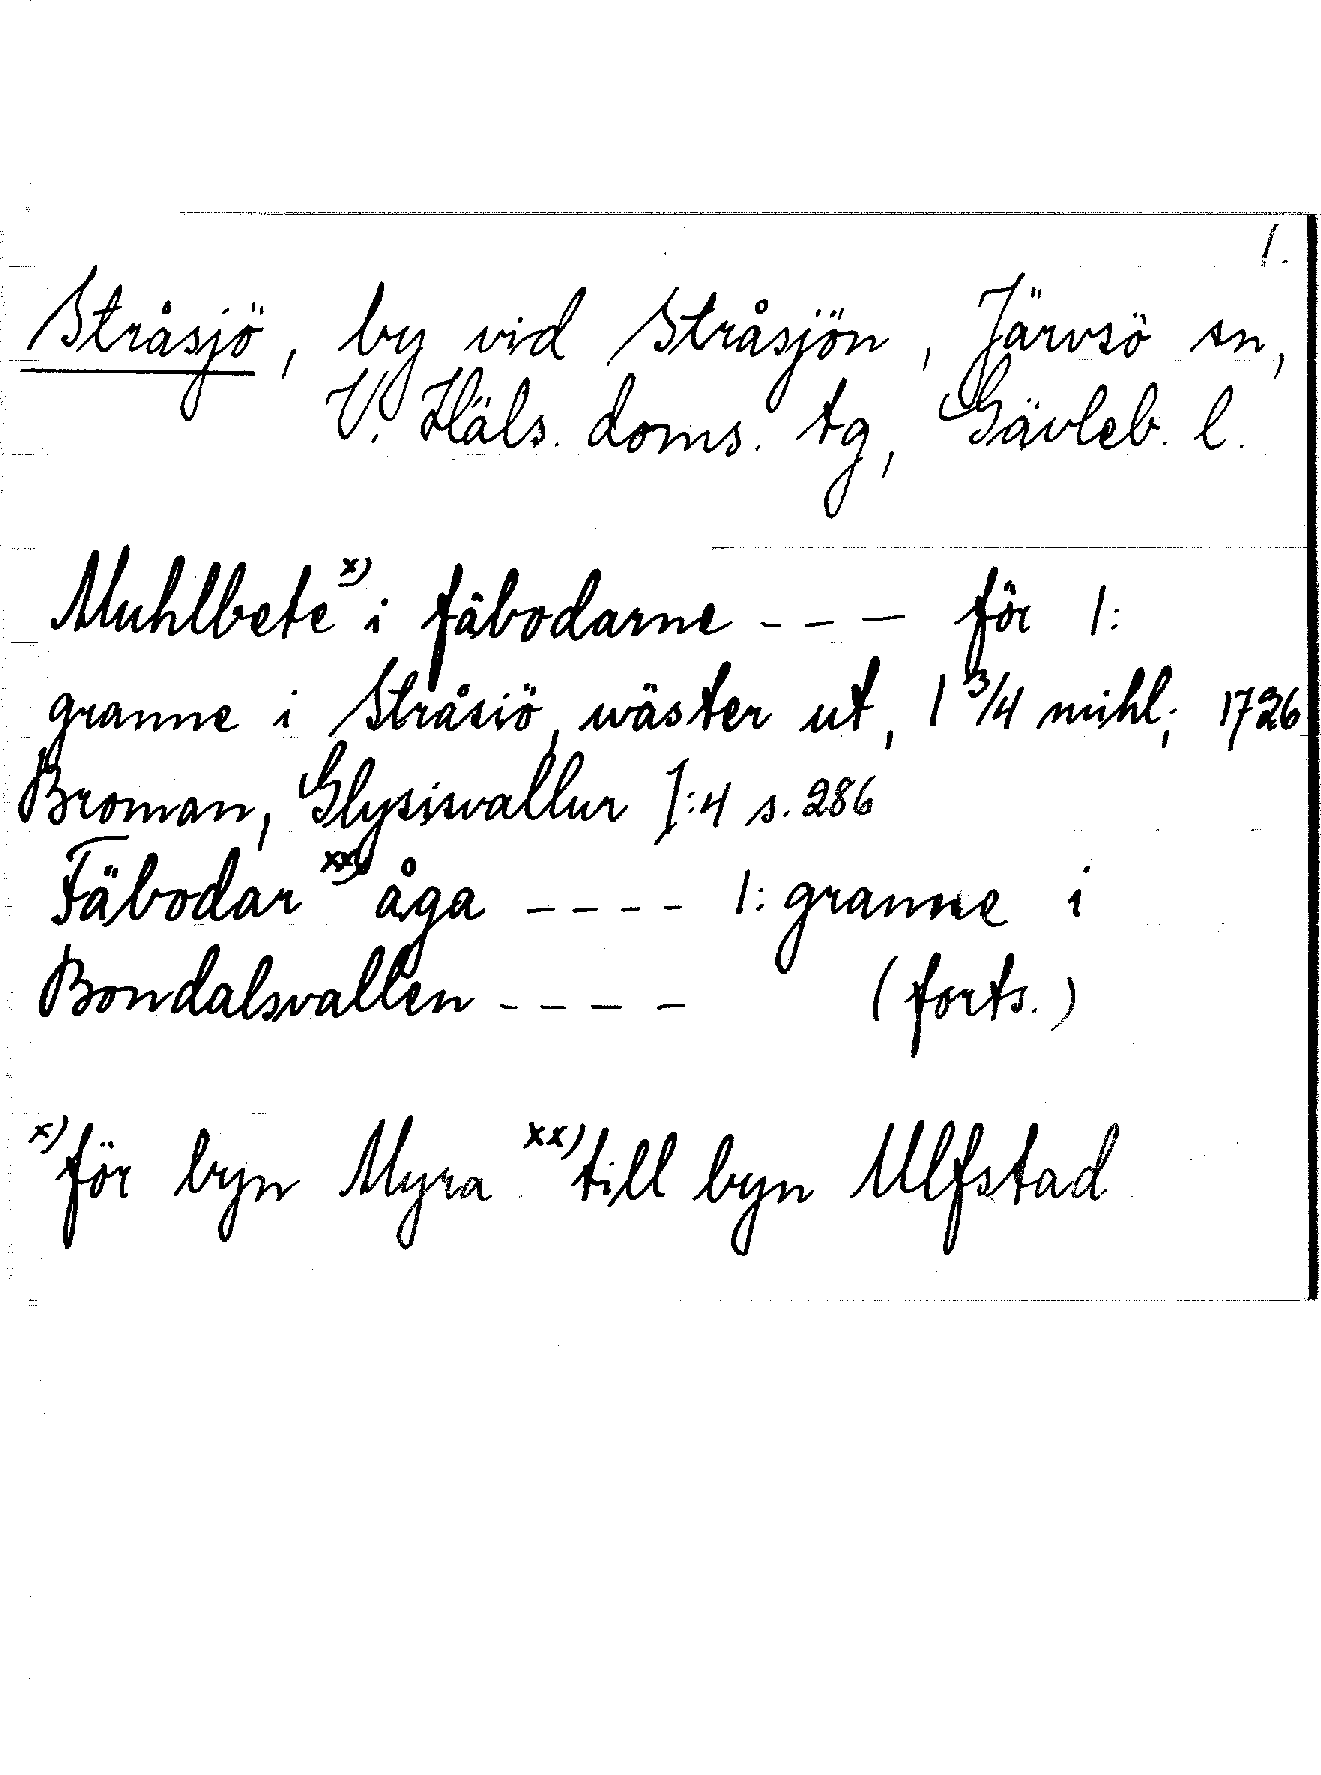 1.
Stråsjö, by vid Stråsjön, Järvsö sn,
V. Häls. doms. tg, Gävleb. l.
Muhlbete x) i fäbodarne - - - för 1:
granne i Stråsiö, wäster ut, 1 3/4 mihl; 1726
Broman, Glysisvallur I:4 s. 286
Fäbodar xx) åga - - - - 1: granne i
Bondalsvallen - - - - (forts.)
x) för byn Myra xx) till byn Ulfstad